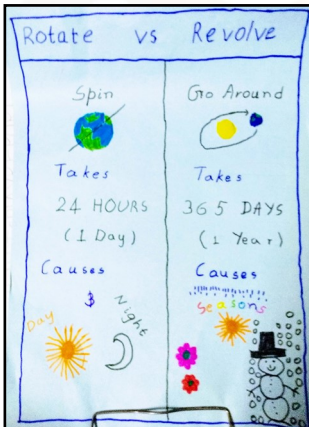 Rotate vs Revolve
Spin
Takes
24 HOURS
(1 Day)
Causes
Day
Night
Go Around
Takes
365 DAYS
(1 Year)
Causes
Seasons